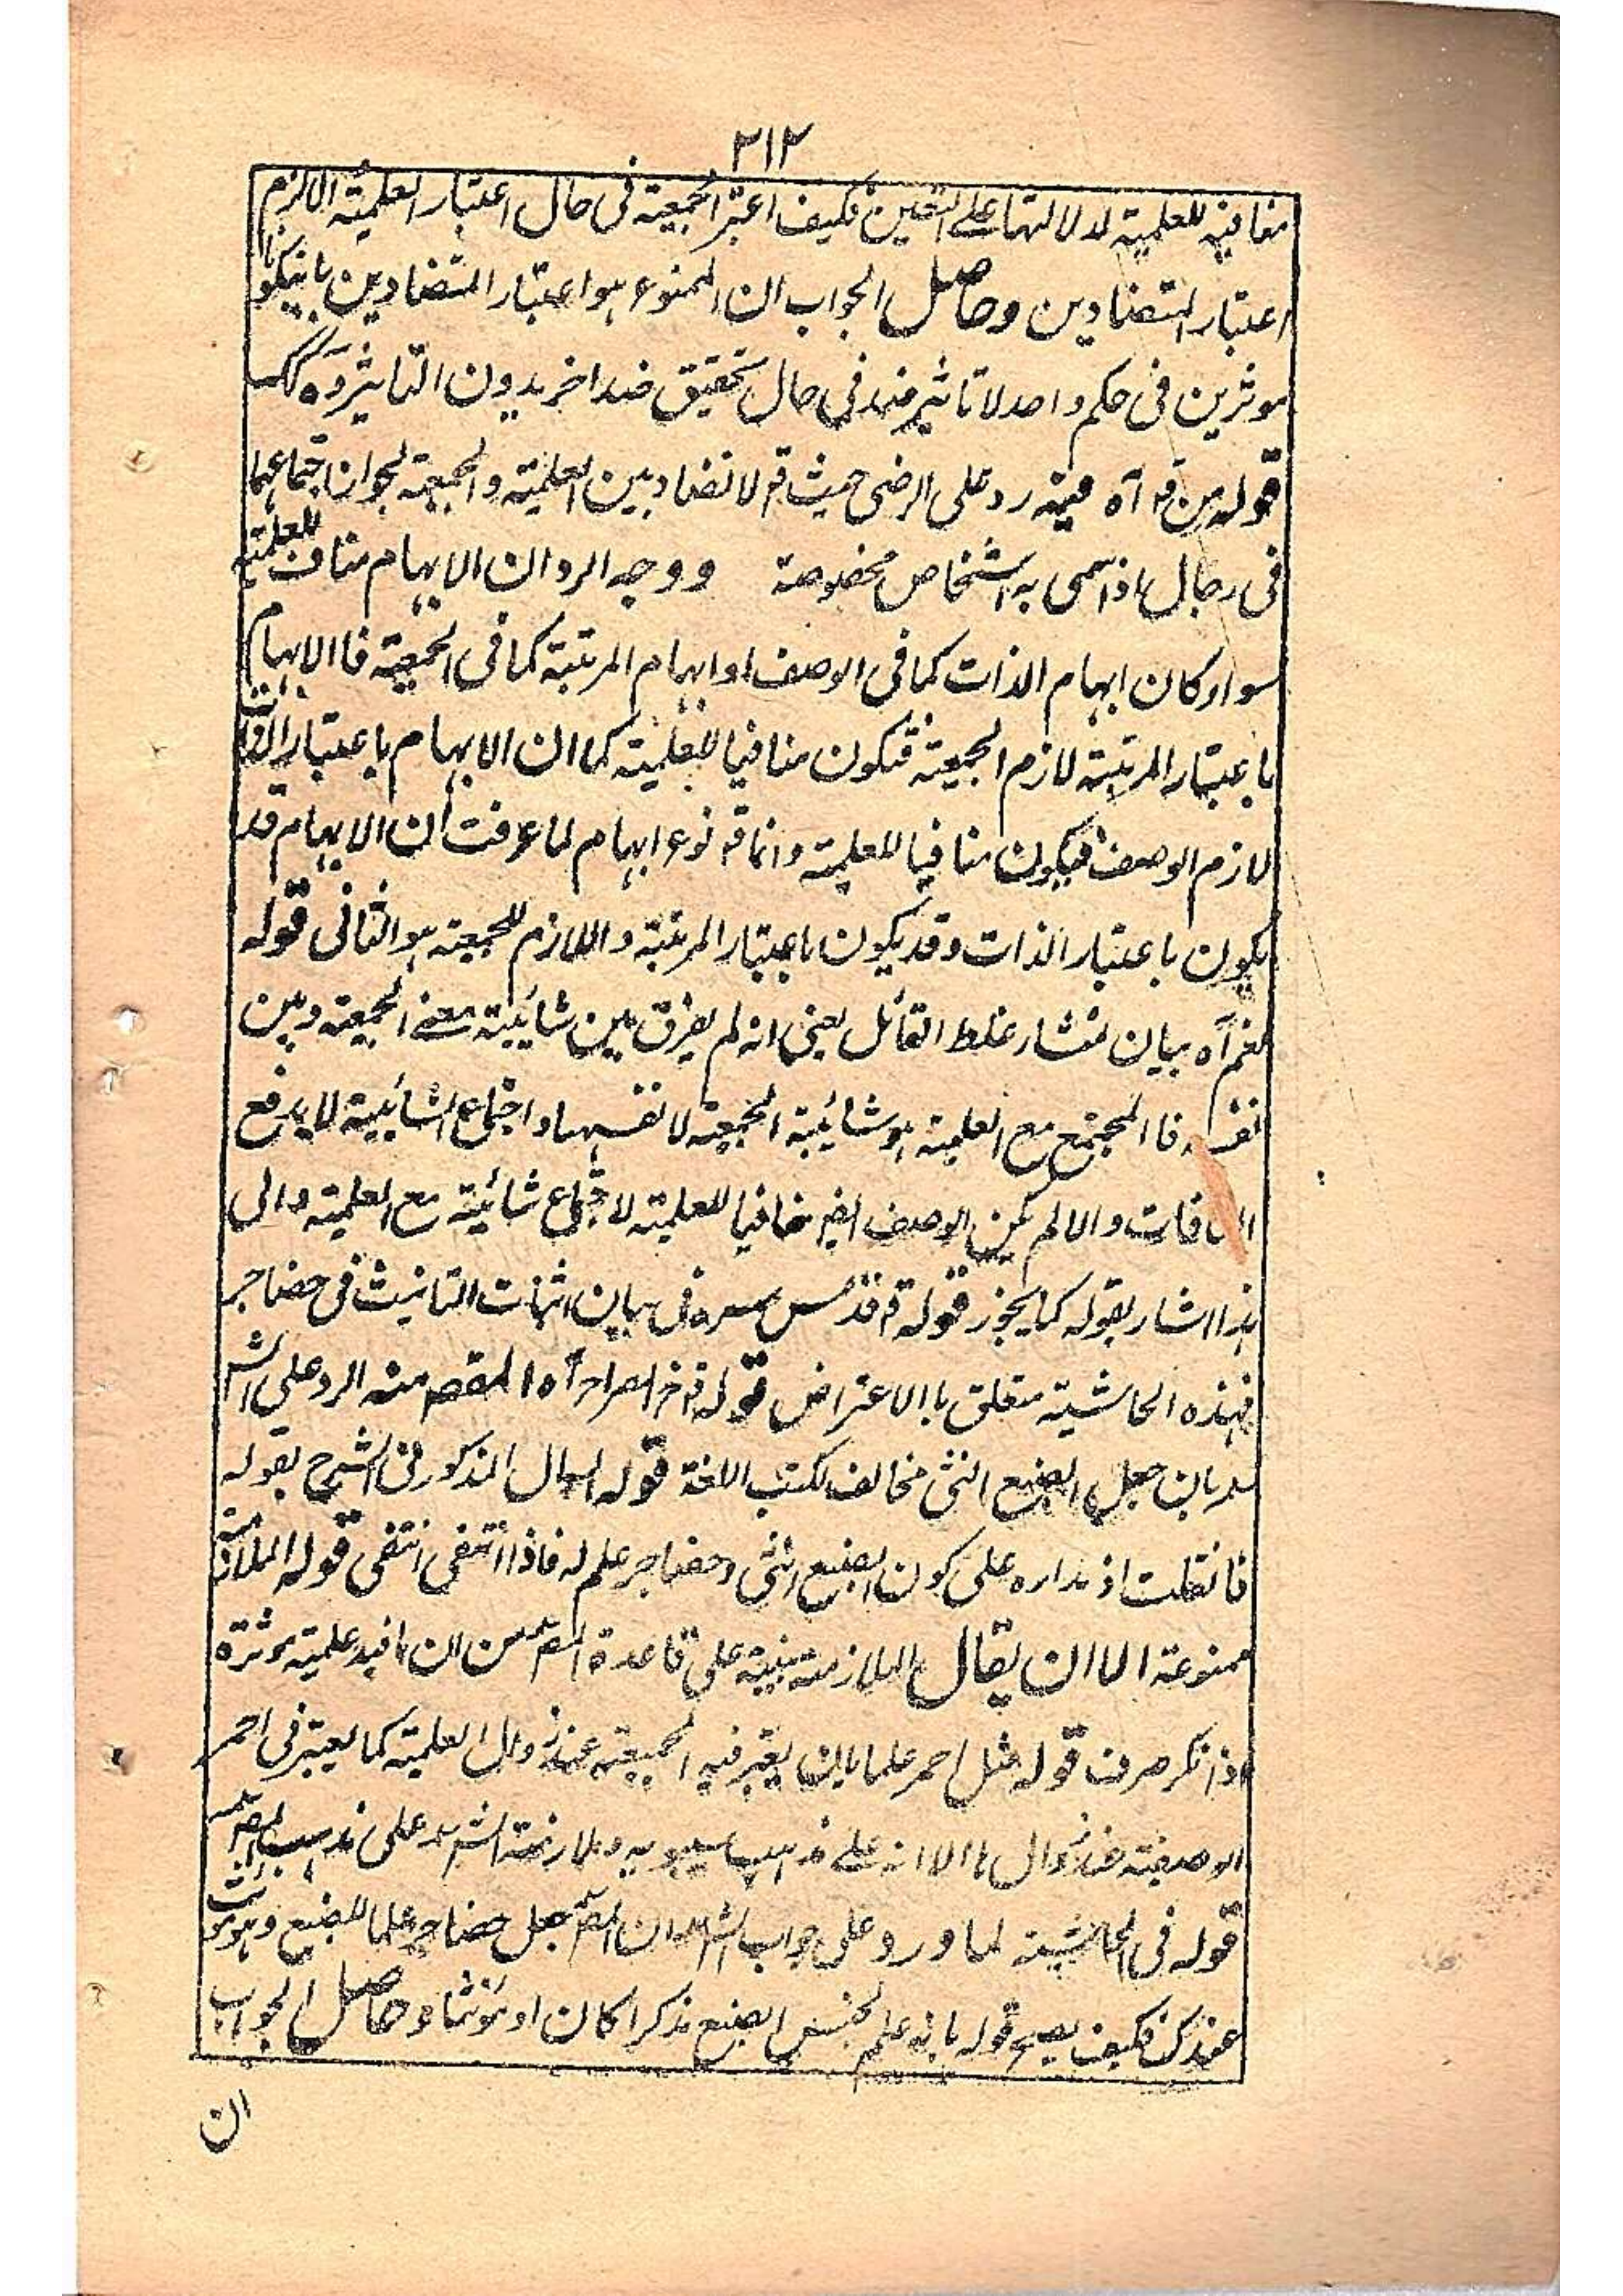 ٢١٢
منافية للعلمية لدلالتها على التعين فكيف اعتبر الجمعية فى حال اعتبار العلمية الا لزم
اعتبار المتضادين وحاصل الجواب ان الممنوع هو اعتبار المتضادين بانيكونا
موثرين فى حكم واحد لا تاثير ضد فى حال تحقيق ضد اخر بدون التاثير وه كك
قوله من قه آه فيه رد على الرضى حيث قه لا تضاد بين العلمية والجمعية لجواز اجتماعهما
فى رجال اذا سمى به اشخاص مخصوصة ووجه الرد ان الابهام مناف للعلمية
سواء كان ابهام الذات كما فى الوصف او ابهام المرتبة كما فى الجمعية فالابهام
باعتبار المرتبة لازم الجمعية فتكون منافيا للعلمية كما ان الابهام باعتبار الذات
لازم الوصف فيكون منافيا للعلمية وانما قه نوع ابهام لما عرفت ان الابهام قد
يكون باعتبار الذات وقد يكون باعتبار المرتبة واللازم للجمعية هو الثانى قوله
نعم آه بيان لمنشاء غلط القائل يعنى انه لم يفرق بين شائبية معنى الجمعية وبين
نفسه فا المجتمع مع العلمية هو شائبة الجمعية لا نفسها واجتماع الشائبية لا يدفع
المنافات والا لم يكن الوصف ايض منافيا للعلمية لاجتماع شائبته مع العلمية والى
هذا اشار بقوله كما يجوز قوله قه قدس سره فى بيان اثبات التانيث فى حضاجر
فهذه الحاشية متعلق باالاعتراض قوله قه فى الصراح آه المقصر منه الرد على الش
بان جعل الضبع انثى مخالف لكتب اللغة قوله السوال المذكور فى الشرح بقوله
فانقلت اذ مداره على كون الضبع انثى وحضاجر علم له فاذا انتفى انتفى قوله الملازمة
ممنوعة الا ان يقال الملازمة مبنية على قاعدة المص من ان ما فيه علمية موثرة
اذا نكر صرف قوله مثل احمر علما بان يعتبر فيه الجمعية عند زوال العلمية كما يعتبر فى احمر
الوصفية عند زوالها الا انه على مذهب سيبويه وملازمة الش على مذهب المص
قوله فى الحاشية لما ورد على جواب الش ان المص جعل حضاجر علما للضبع وهو مونث
عندك فكيف يصح قوله بانه علم لجنس الضبع مذكرا كان او مونثا وحاصل الجواب
ان